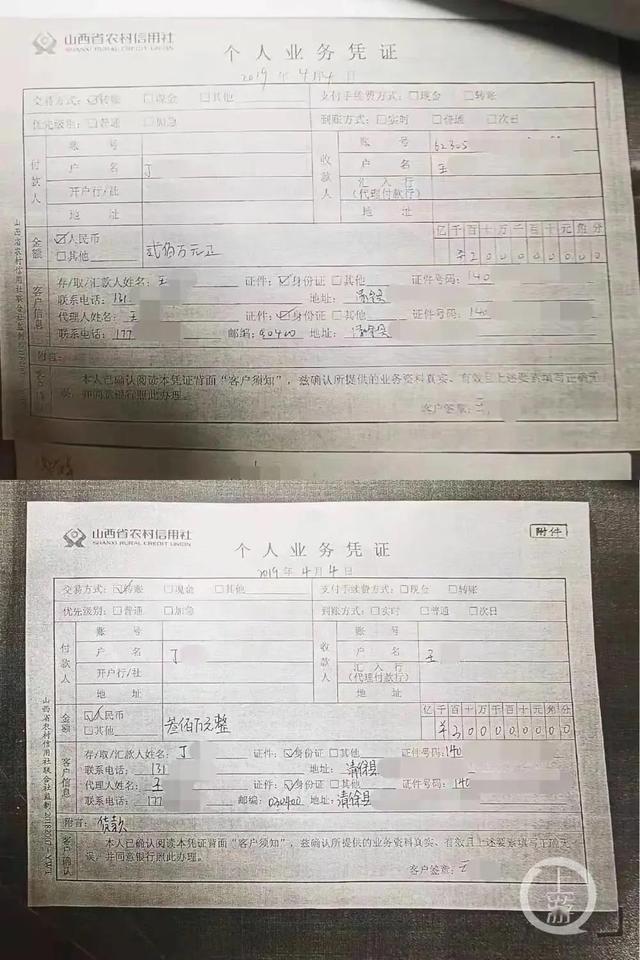 山西省农村信用社
SHANXI RURAL CREDIT UNION
个人业务凭证
2019年4月4日
交易方式：☑转账 □现金 □其他 支付手续费方式：□现金 □转账
优先级别：□普通 □加急 到账方式：□实时 □普通 □次日
付款人 账号 收款人 账号 62305
户名 丁 户名 王
开户行/社 汇入行（代理付款行）
地址 地址
金额 ☑人民币 □其他 贰佰万元正 亿千百十万千百十元角分 ¥200000000
客户信息 存/取/汇款人姓名：王 证件：☑身份证 □其他 证件号码：140
联系电话：131 地址：清徐县
代理人姓名：王 证件：☑身份证 □其他 证件号码：140
联系电话：177 邮编： 地址：清徐县
附言：
本人已确认阅读本凭证背面“客户须知”，兹确认所提供的业务资料真实、有效且上述要素填写正确无
误，并同意银行照此办理。
客户签章：王
山西省农村信用社联合社监制
山西省农村信用社
SHANXI RURAL CREDIT UNION
附件
个人业务凭证
2019年4月4日
交易方式：☑转账 □现金 □其他 支付手续费方式：□现金 □转账
优先级别：□普通 □加急 到账方式：□实时 □普通 □次日
付款人 账号 收款人 账号
户名 丁 户名 王
开户行/社 汇入行（代理付款行）
地址 地址
金额 ☑人民币 □其他 叁佰万元整 亿千百十万千百十元角分 ¥300000000
客户信息 存/取/汇款人姓名：丁 证件：☑身份证 □其他 证件号码：140
联系电话：131 地址：清徐县
代理人姓名：王 证件：☑身份证 □其他 证件号码：140
联系电话：177 邮编：030400 地址：清徐县
附言：货款
客户确认 本人已确认阅读本凭证背面“客户须知”，兹确认所提供的业务资料真实、有效且上述要素填写正确无
误，并同意银行照此办理。
客户签章：王
山西省农村信用社联合社监制
上游